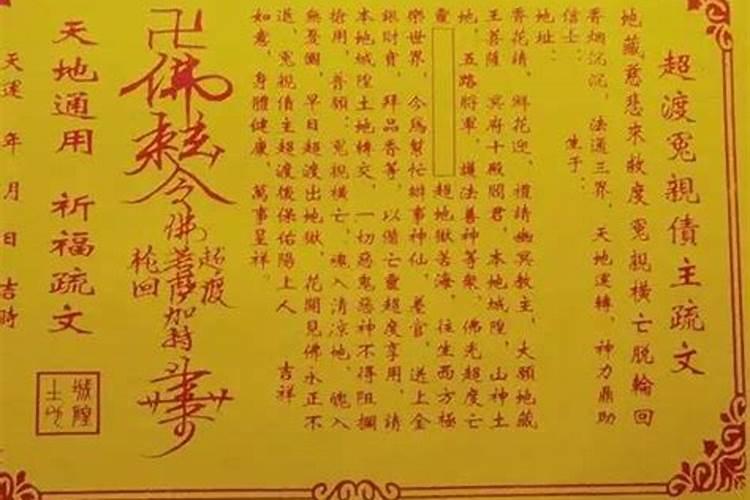 超渡冤親債主疏文
地藏慈悲來救度 冤親橫亡脫輪回
香烟沉沉，法通三界，天地運轉，神力鼎助
信士： 生于：
地址：
香花請，鮮花迎，禮請幽冥教主，大願地藏
王菩薩 冥府十殿閻君，本地城隍，山神土
地，五路將軍，護法善神等衆，佛光超度亡
靈 超地獄苦海，往生西方極
樂世界，今爲幫忙辦事神仙，差官，送上金
銀財寶，拜品香等，以備亡靈超度享用，請
本地城隍土地轉交，一切惡鬼惡神不得阻攔
搶用，普願：冤親橫亡，魂入清凉地，魄入
無憂國，早日超渡出地獄，花開見佛永正不
退，冤親債主超渡後保佑陽上人 吉祥
如意，身體健康，萬事呈祥。
卍佛來 令佛菩薩加持
超渡
輪回
天地通用 祈福疏文
城隍
天運 年 月 日 吉時